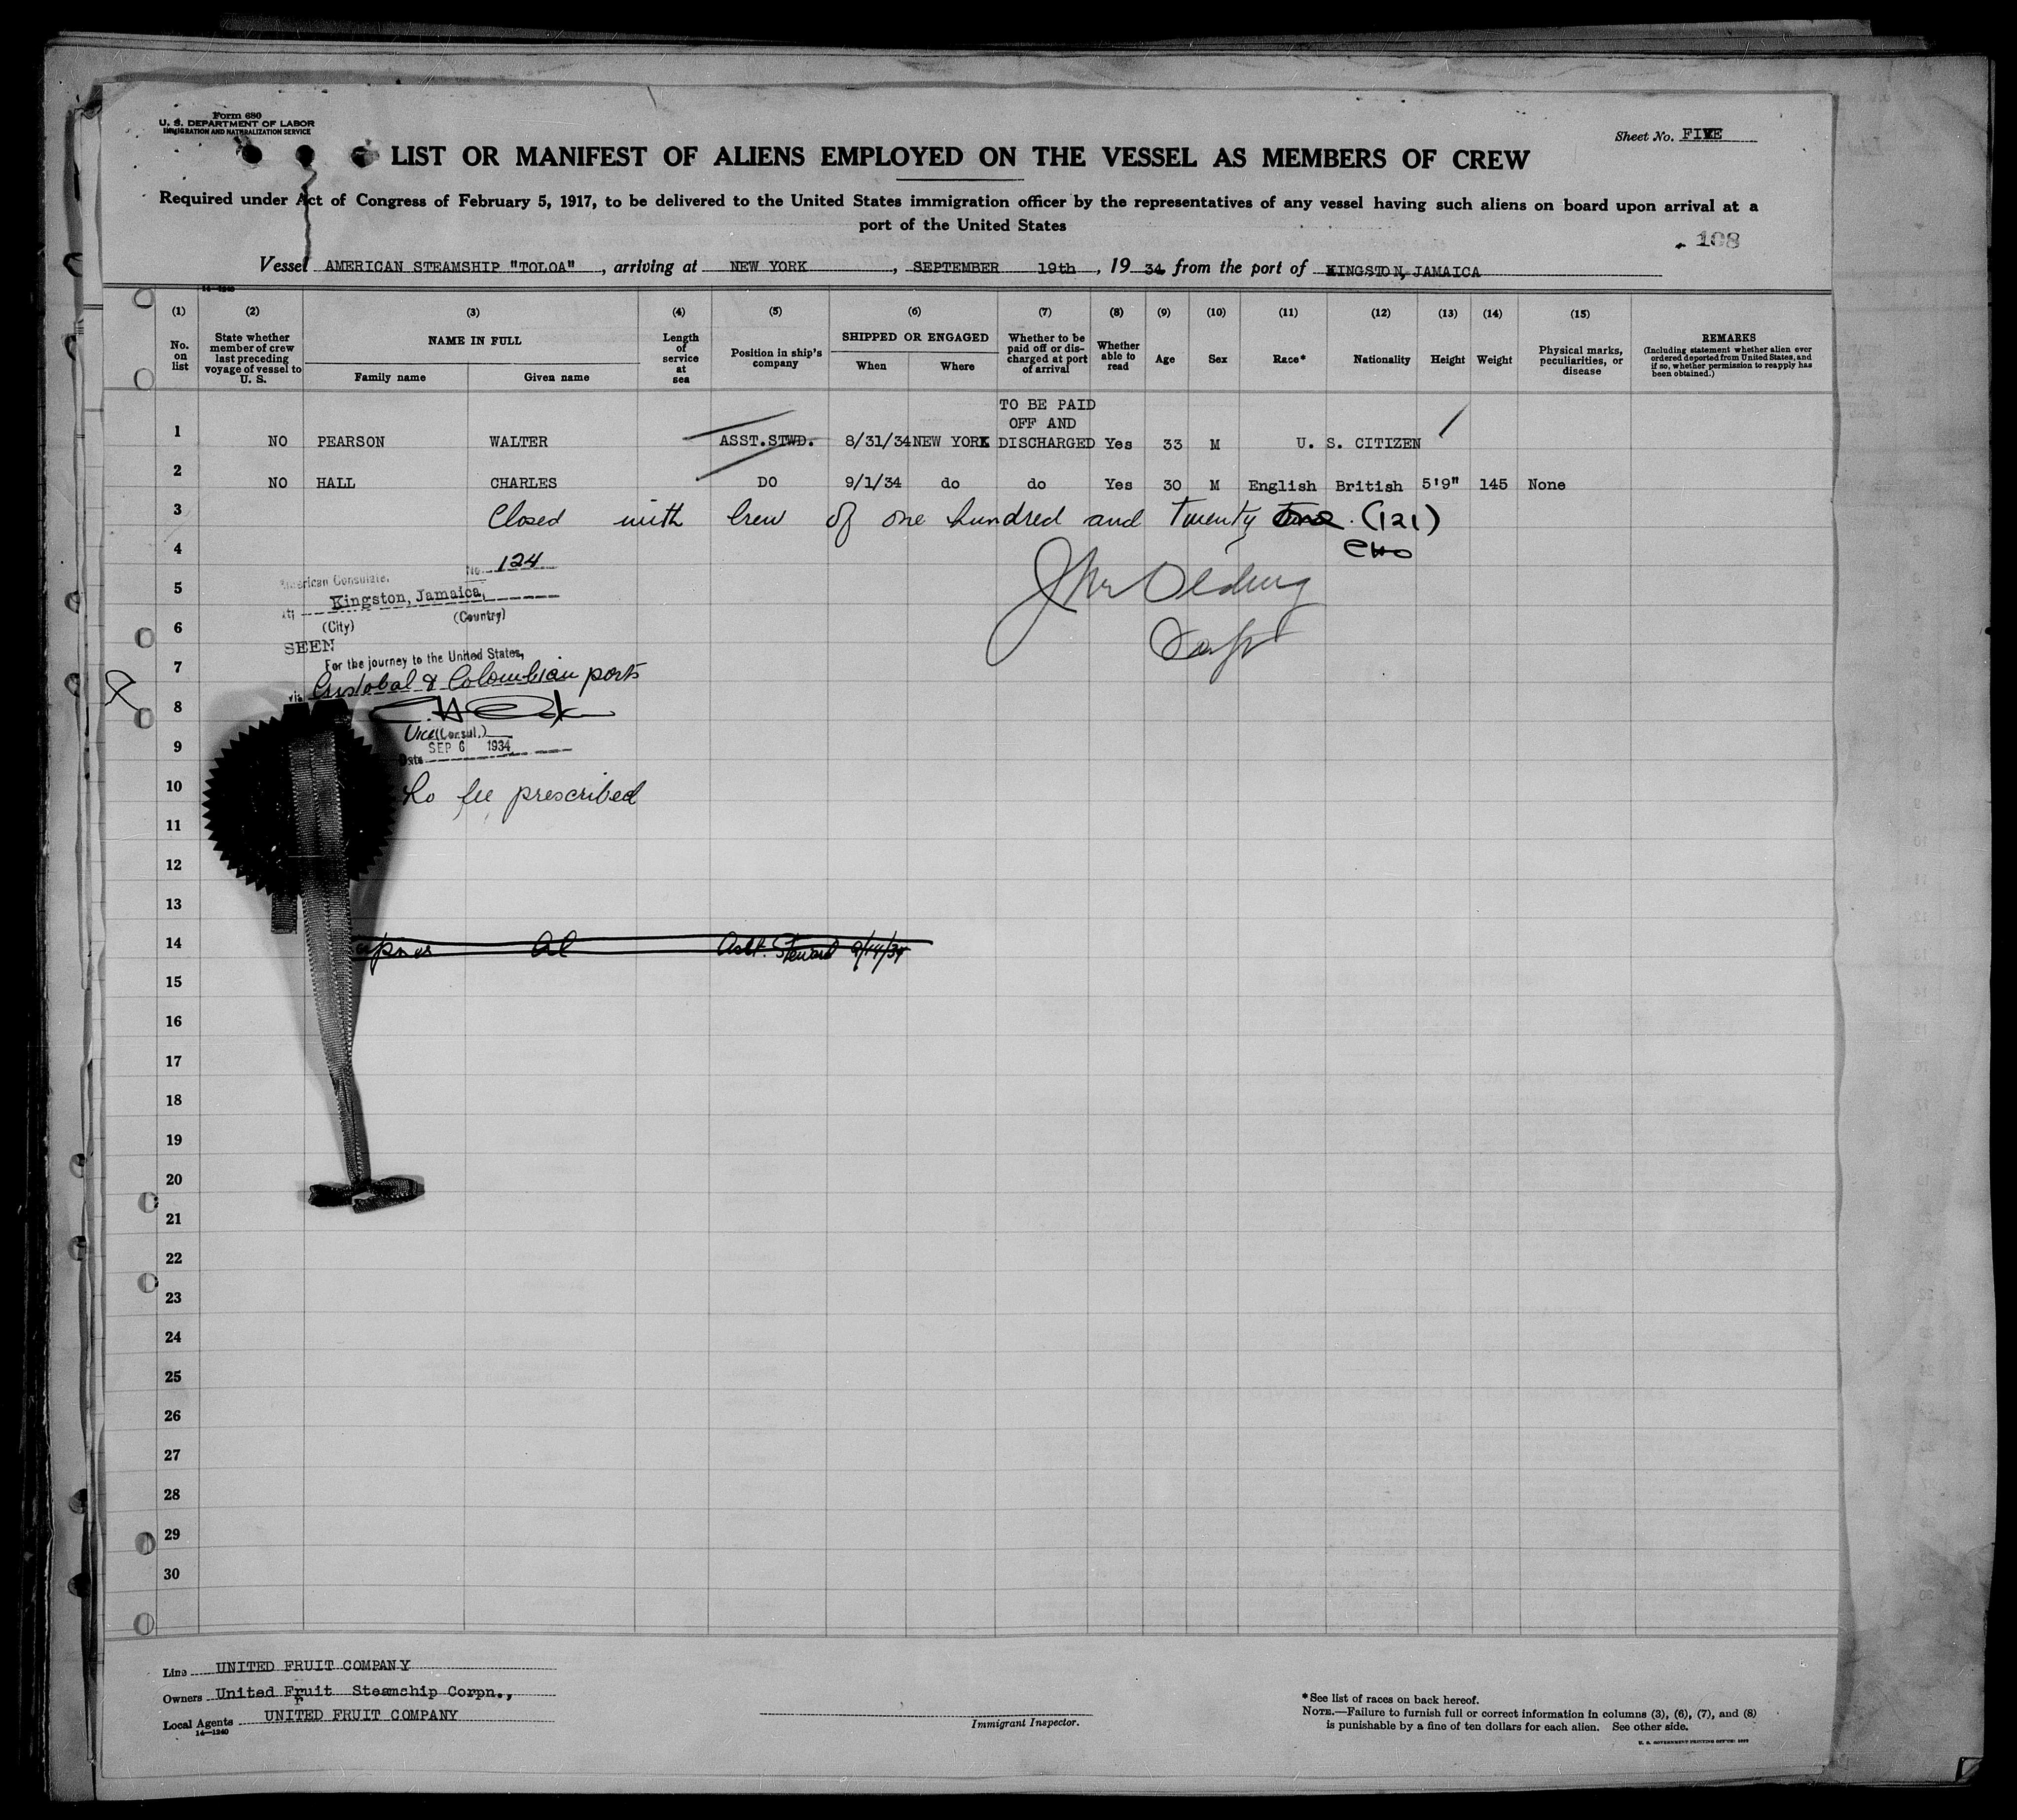 Form 680
U. S. DEPARTMENT OF LABOR
IMMIGRATION AND NATURALIZATION SERVICE
Sheet No. FIVE
LIST OR MANIFEST OF ALIENS EMPLOYED ON THE VESSEL AS MEMBERS OF CREW
Required under Act of Congress of February 5, 1917, to be delivered to the United States immigration officer by the representatives of any vessel having such aliens on board upon arrival at a
port of the United States
108
Vessel AMERICAN STEAMSHIP "TOLOA", arriving at NEW YORK, SEPTEMBER 19th, 1934, from the port of KINGSTON, JAMAICA
(1) (2) (3) (4) (5) (6) (7) (8) (9) (10) (11) (12) (13) (14) (15)
No. on list
State whether member of crew last preceding voyage of vessel to U. S.
NAME IN FULL
Family name Given name
Length of service at sea
Position in ship's company
SHIPPED OR ENGAGED
When Where
Whether to be paid off or discharged at port of arrival
Whether able to read
Age
Sex
Race*
Nationality
Height
Weight
Physical marks, peculiarities, or disease
REMARKS
(Including statement whether alien ever ordered deported from United States, and if so, whether permission to reapply has been obtained.)
TO BE PAID
OFF AND
1 NO PEARSON WALTER ASST.STWD. 8/31/34 NEW YORK DISCHARGED Yes 33 M U. S. CITIZEN
2 NO HALL CHARLES DO 9/1/34 do do Yes 30 M English British 5'9" 145 None
3 Closed with Crew of one hundred and Twenty One. (121)
4
No. 124
American Consulate,
5
at Kingston, Jamaica,
(City) (Country)
6
SEEN
For the journey to the United States,
7
via Cristobal & Colombian ports
8
Vice (Consul.)
9
Date SEP 6 1934
10 No fee prescribed
11
12
13
14 Al Asst. Steward 9/14/34
15
16
17
18
19
20
21
22
23
24
25
26
27
28
29
30
Line UNITED FRUIT COMPANY
Owners United Fruit Steamship Corpn.,
Local Agents UNITED FRUIT COMPANY
14—1240
Immigrant Inspector.
*See list of races on back hereof.
NOTE.—Failure to furnish full or correct information in columns (3), (6), (7), and (8)
is punishable by a fine of ten dollars for each alien. See other side.